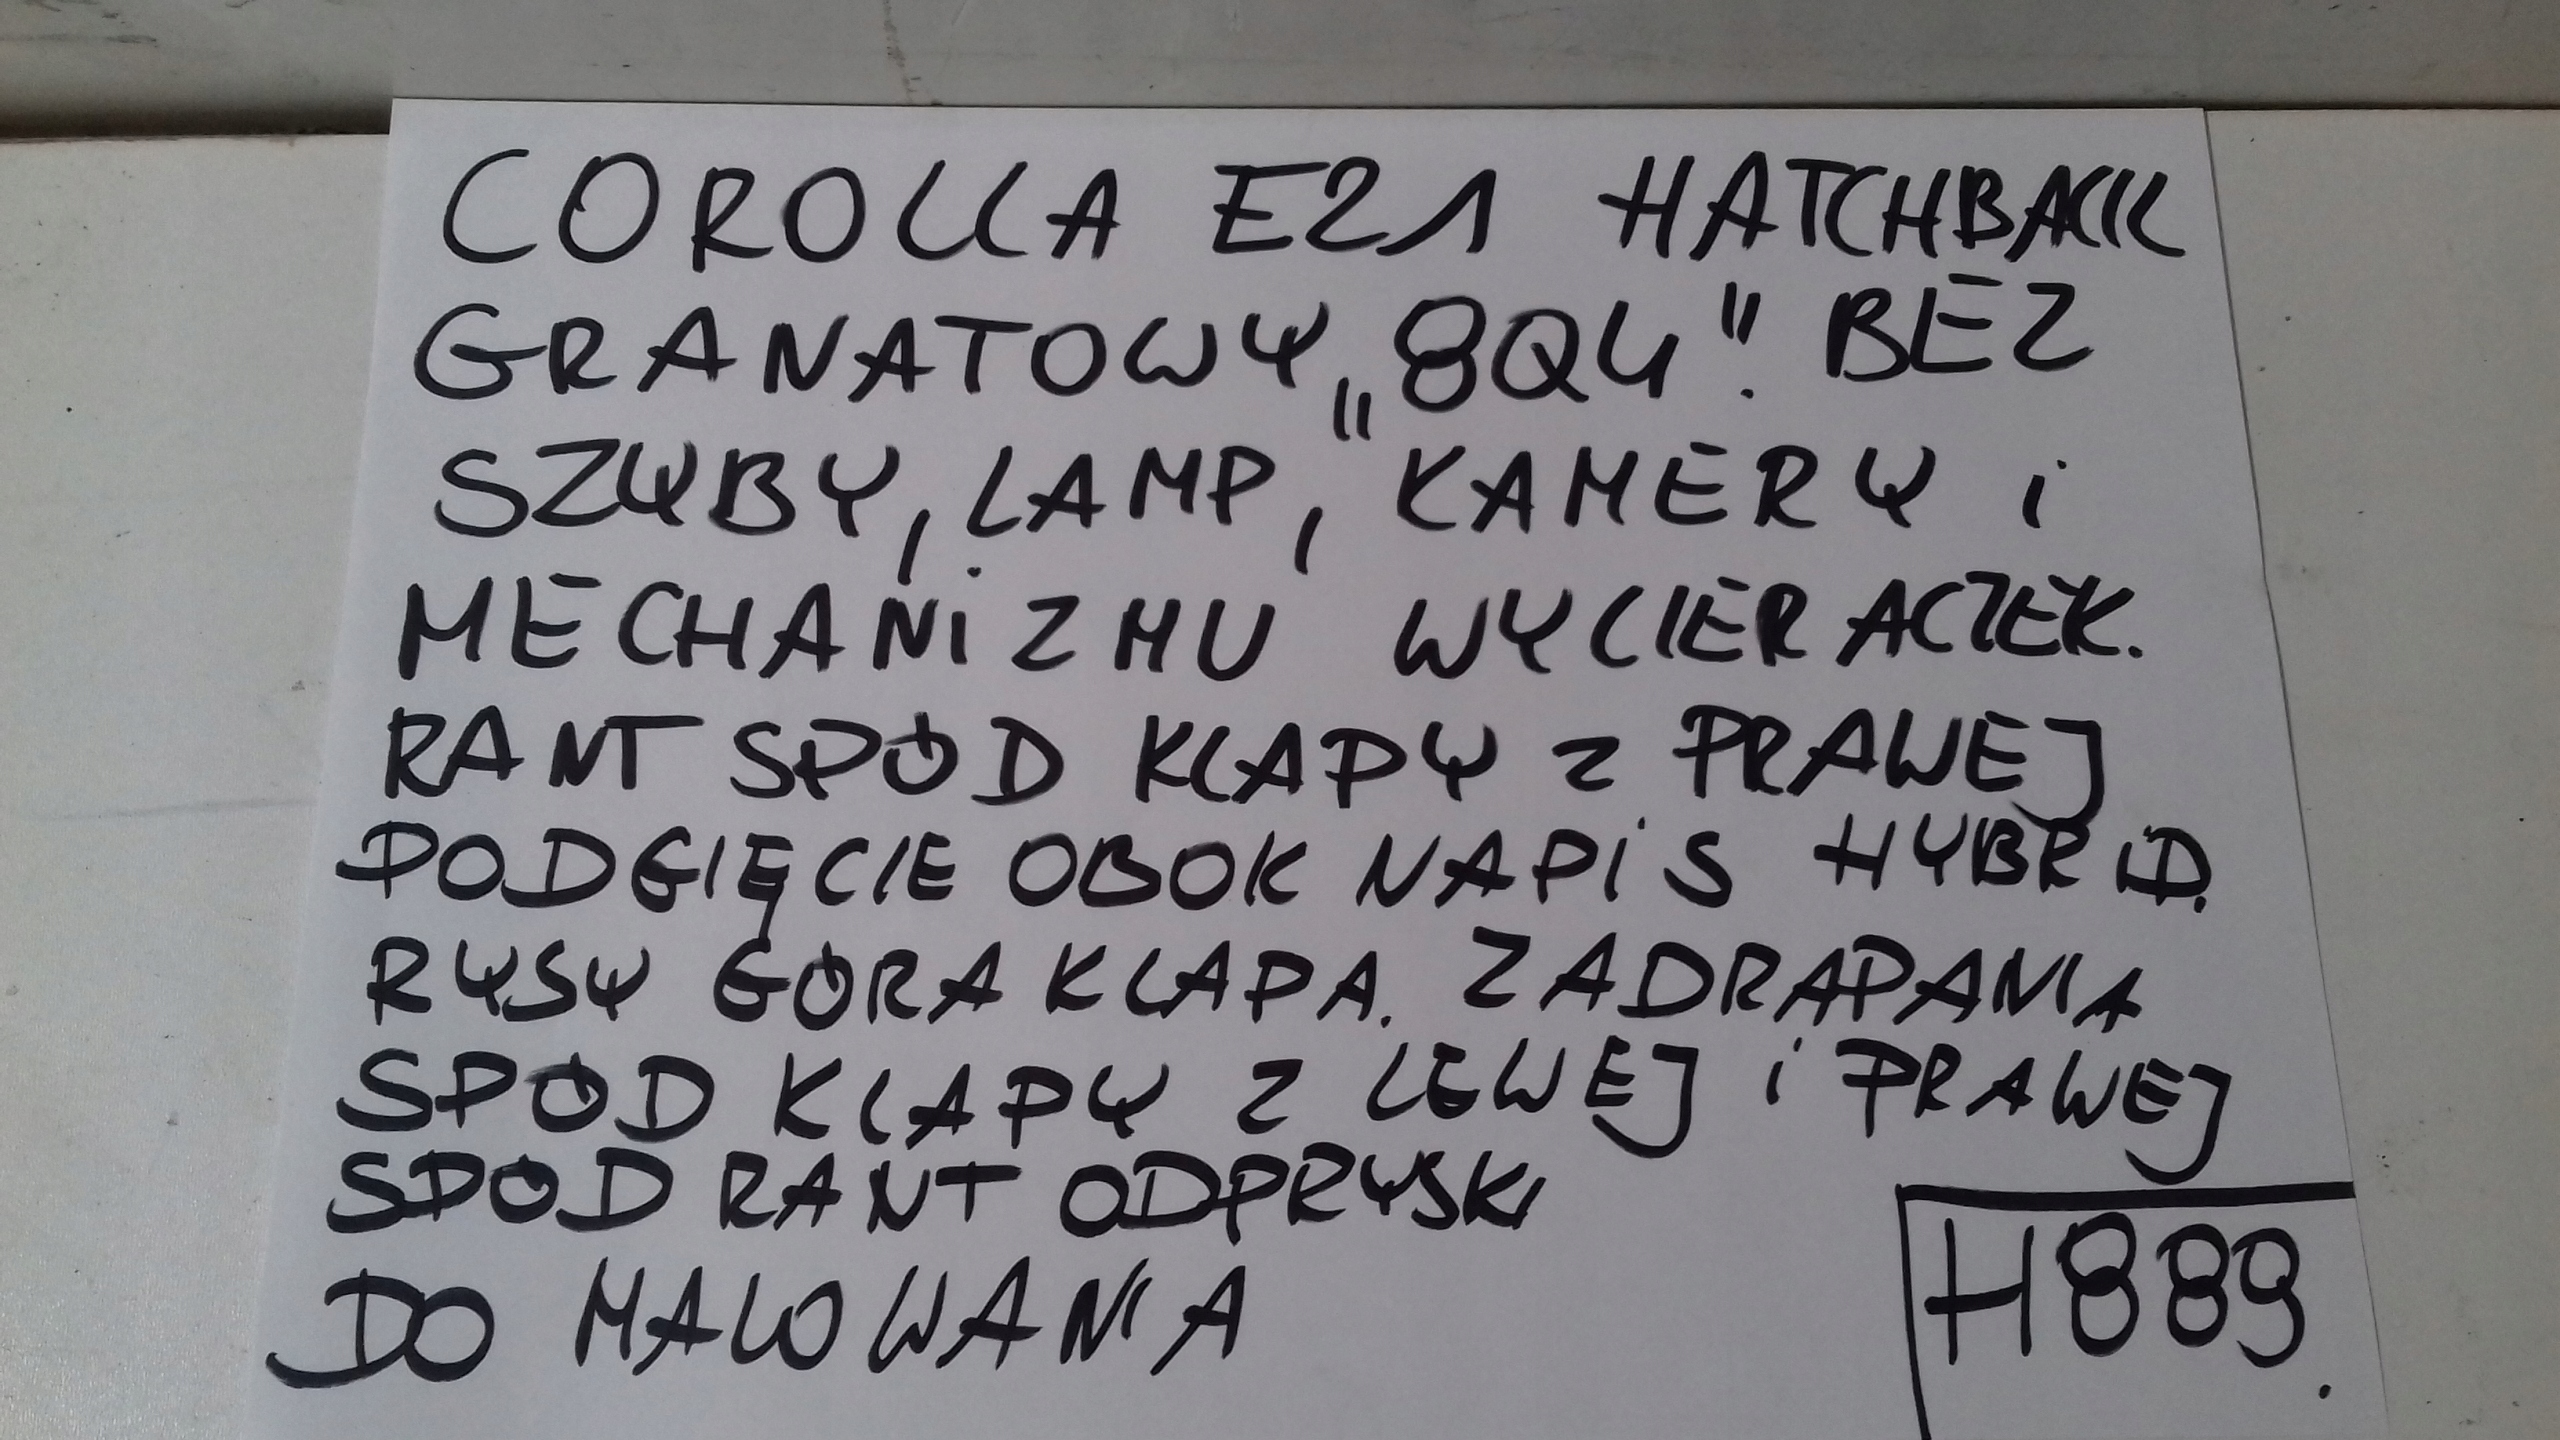 COROLLA E21 HATCHBACK
GRANATOWY „8Q4". BEZ
SZYBY, LAMP, KAMERY i
MECHANiZMU WYCIERACZEK.
RANT SPÓD KLAPY z PRAWEJ
PODGIĘCIE OBOK NAPiS HYBRiD.
RYSY GÓRA KLAPA. ZADRAPANIA
SPÓD KLAPY Z LEWEJ i PRAWEJ
SPÓD RANT ODPRYSKI
DO MALOWANIA
H889.